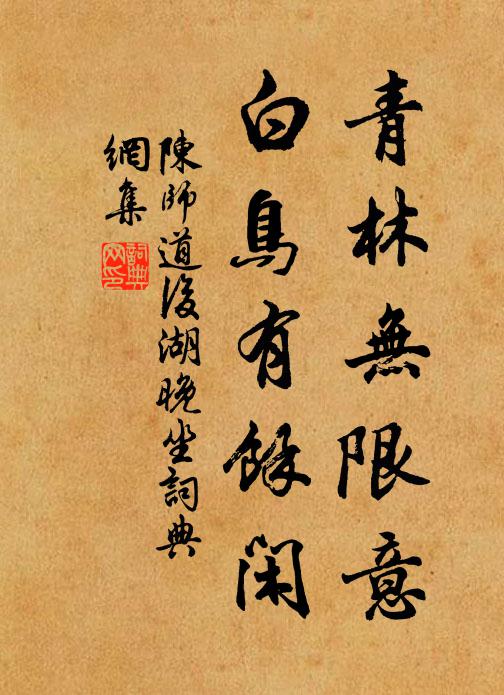 青林無限意
白鳥有餘閑
陳師道後湖晚坐詞典
網集
詞典
網印